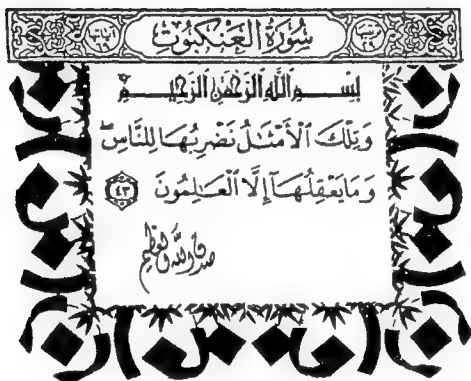 سُورَةُ الْعَنْكَبُوتِ
بِسْمِ اللَّهِ الرَّحْمَٰنِ الرَّحِيمِ
وَتِلْكَ ٱلْأَمْثَٰلُ نَضْرِبُهَا لِلنَّاسِ ۖ
وَمَا يَعْقِلُهَآ إِلَّا ٱلْعَٰلِمُونَ ٤٣
صدق الله العظيم